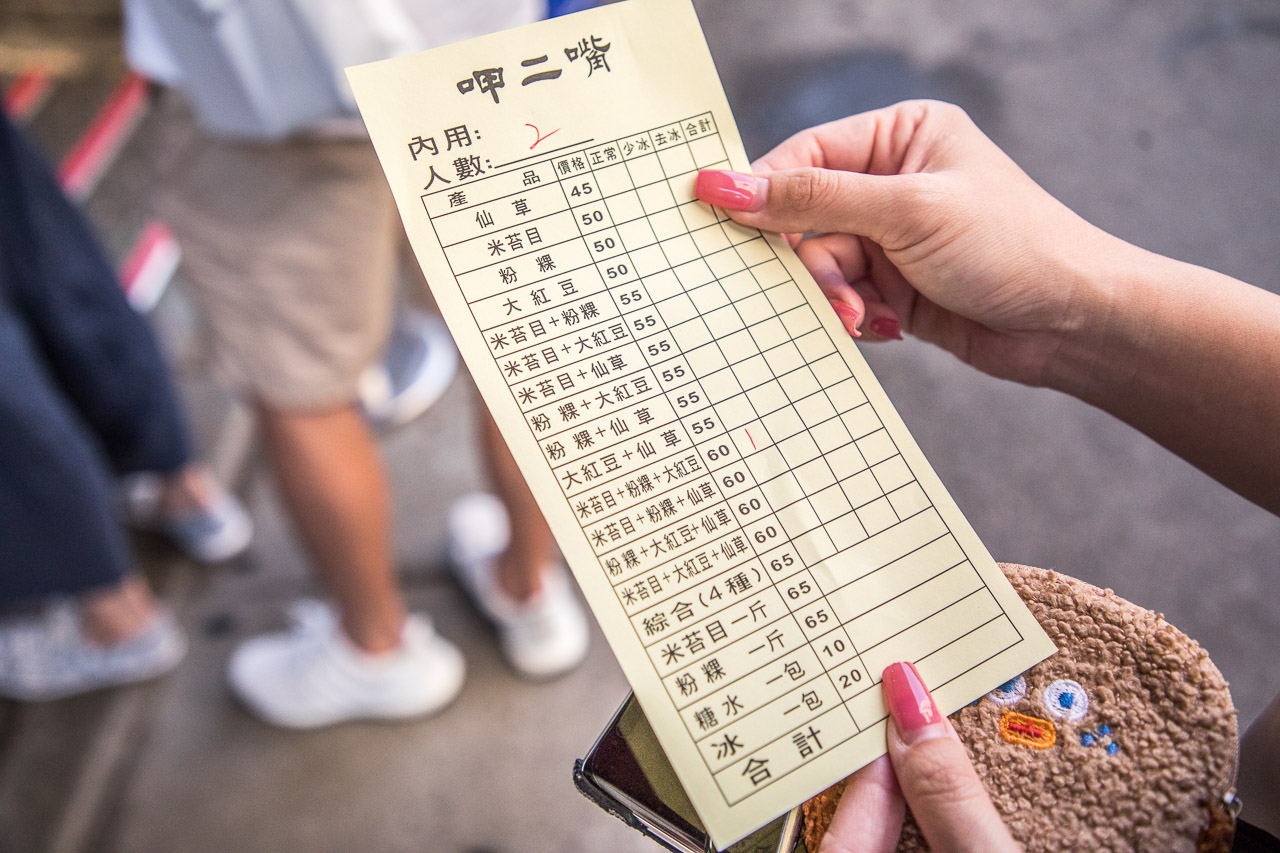 呷二嘴
內用:
人數: 2
產品 價格 正常 少冰 去冰 合計
仙草 45
米苔目 50
粉粿 50
大紅豆 50
米苔目+粉粿 55
米苔目+大紅豆 55
米苔目+仙草 55
粉粿+大紅豆 55
粉粿+仙草 55
大紅豆+仙草 55
米苔目+粉粿+大紅豆 60 1
米苔目+粉粿+仙草 60
粉粿+大紅豆+仙草 60
米苔目+大紅豆+仙草 60
綜合(4種) 65
米苔目一斤 65
粉粿 一斤 65
糖水 一包 10
冰 一包 20
合計